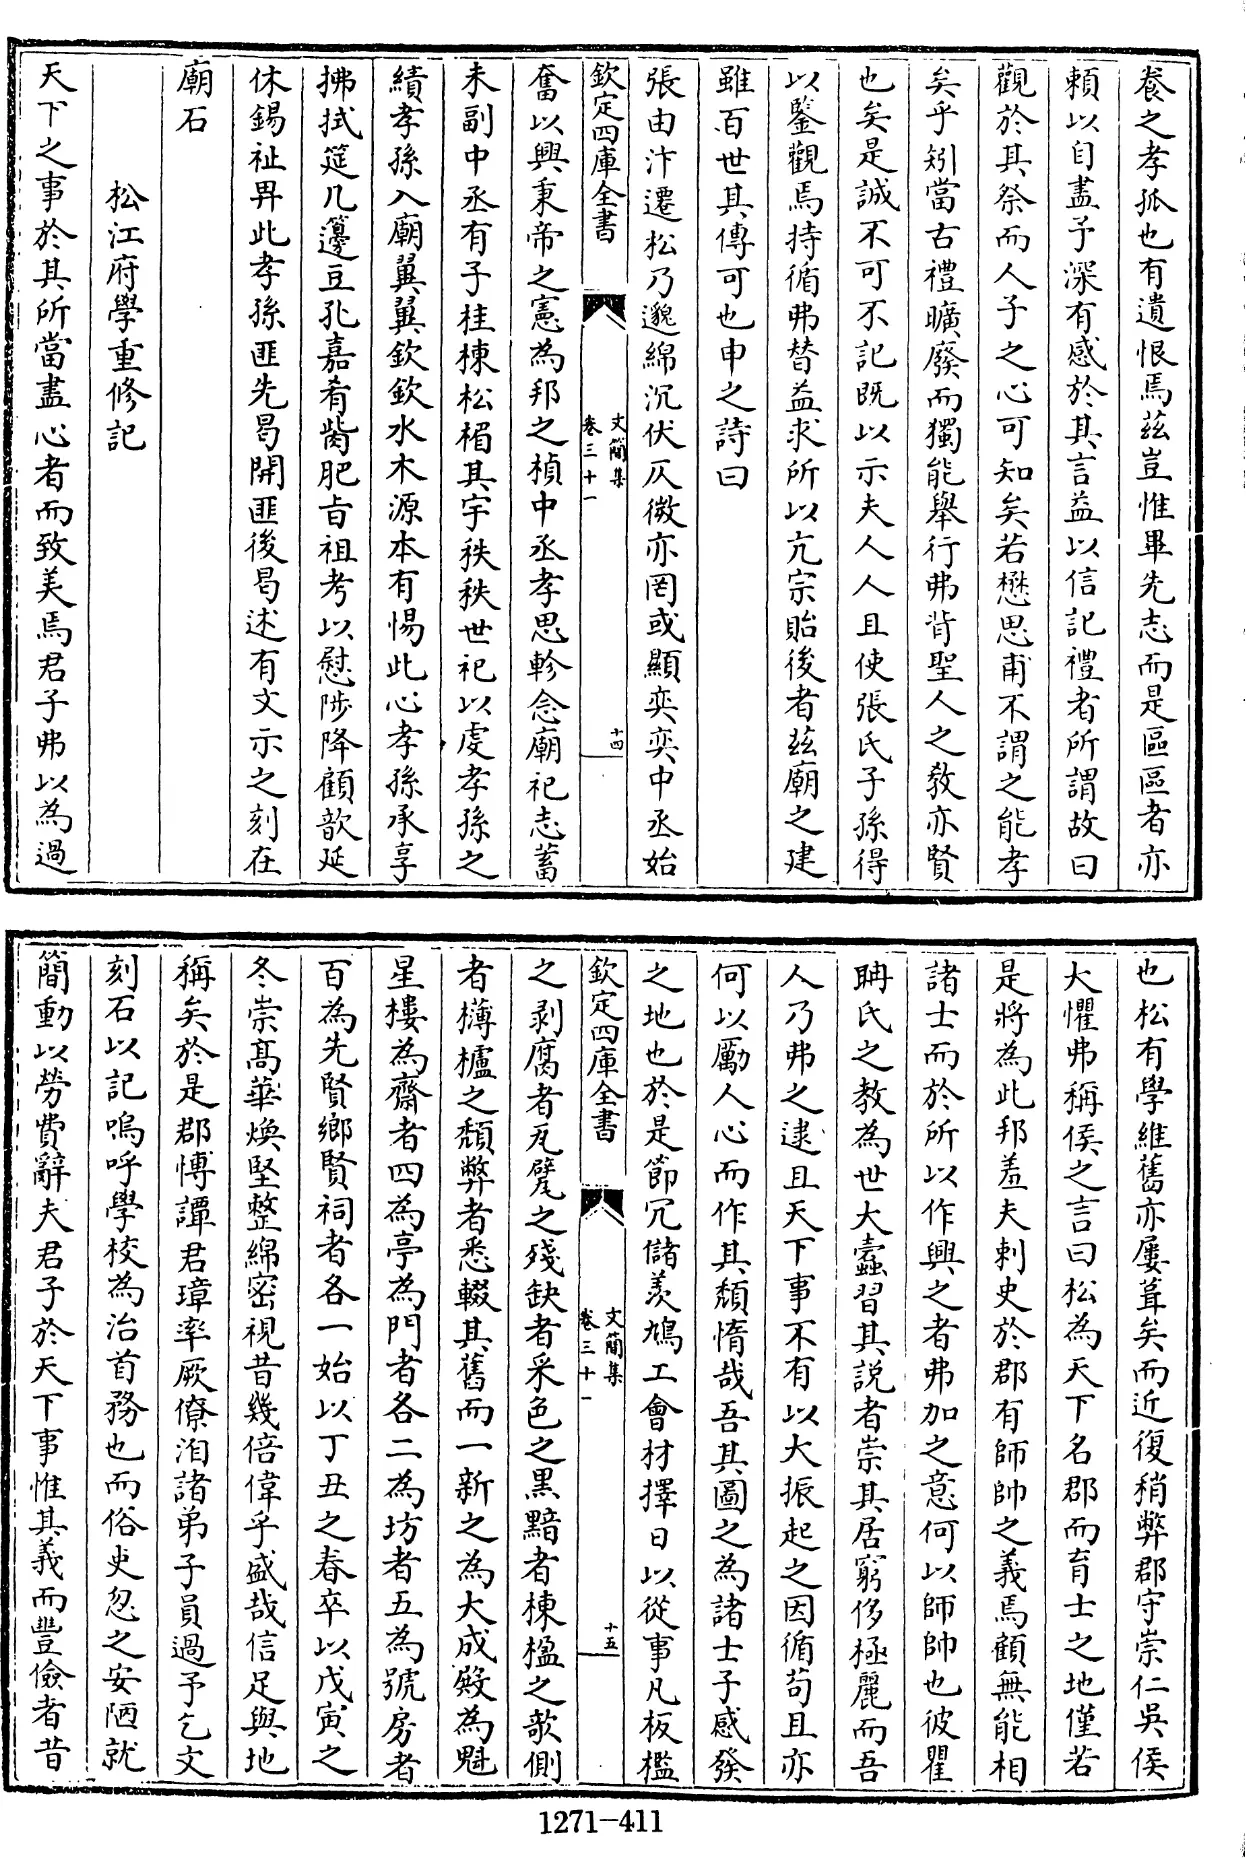 養之孝孤也有遺恨焉兹豈惟畢先志而是區區者亦
賴以自盡予深有感於其言益以信記禮者所謂故曰
觀於其祭而人子之心可知矣若懋思甫不謂之能孝
矣乎矧當古禮曠廢而獨能舉行弗背聖人之教亦賢
也矣是誠不可不記既以示夫人人且使張氏子孫得
以鑒觀焉持循弗替益求所以亢宗貽後者兹廟之建
雖百世其傳可也申之詩曰
張由汴遷松乃邈綿沉伏仄微亦罔或顯奕奕中丞始
欽定四庫全書
文簡集
卷三十一
十四
奮以興秉帝之憲為邦之楨中丞孝思軫念廟祀志蓄
未副中丞有子桂棟松楣其宇秩秩世祀以虔孝孫之
績孝孫入廟翼翼欽欽水木源本有惕此心孝孫承享
拂拭筵几籩豆孔嘉肴胾肥旨祖考以慰陟降顧歆延
休錫祉畀此孝孫匪先曷開匪後曷述有文示之刻在
廟石
松江府學重修記
天下之事於其所當盡心者而致美焉君子弗以為過
也松有學維舊亦屢葺矣而近復稍弊郡守崇仁吳侯
大懼弗稱侯之言曰松為天下名郡而育士之地僅若
是將為此邦羞夫刺史於郡有師帥之義焉顧無能相
諸士而於所以作興之者弗加之意何以師帥也彼瞿
聃氏之教為世大蠹習其説者崇其居窮侈極麗而吾
人乃弗之逮且天下事不有以大振起之因循苟且亦
何以勵人心而作其頹惰哉吾其圖之為諸士子感發
之地也於是節冗儲羡鳩工會材擇日以從事凡板檻
欽定四庫全書
文簡集
卷三十一
十五
之剥腐者瓦甓之殘缺者采色之黒黯者棟楹之欹側
者欂櫨之頹弊者悉輟其舊而一新之為大成殿為魁
星樓為齋者四為亭為門者各二為坊者五為號房者
百為先賢鄉賢祠者各一始以丁丑之春卒以戊寅之
冬崇髙華煥堅整綿密視昔幾倍偉乎盛哉信足與地
稱矣於是郡博譚君璋率厥僚洎諸弟子員過予乞文
刻石以記嗚呼學校為治首務也而俗吏忽之安陋就
簡動以勞費辭夫君子於天下事惟其義而豐儉者昔
1271-411